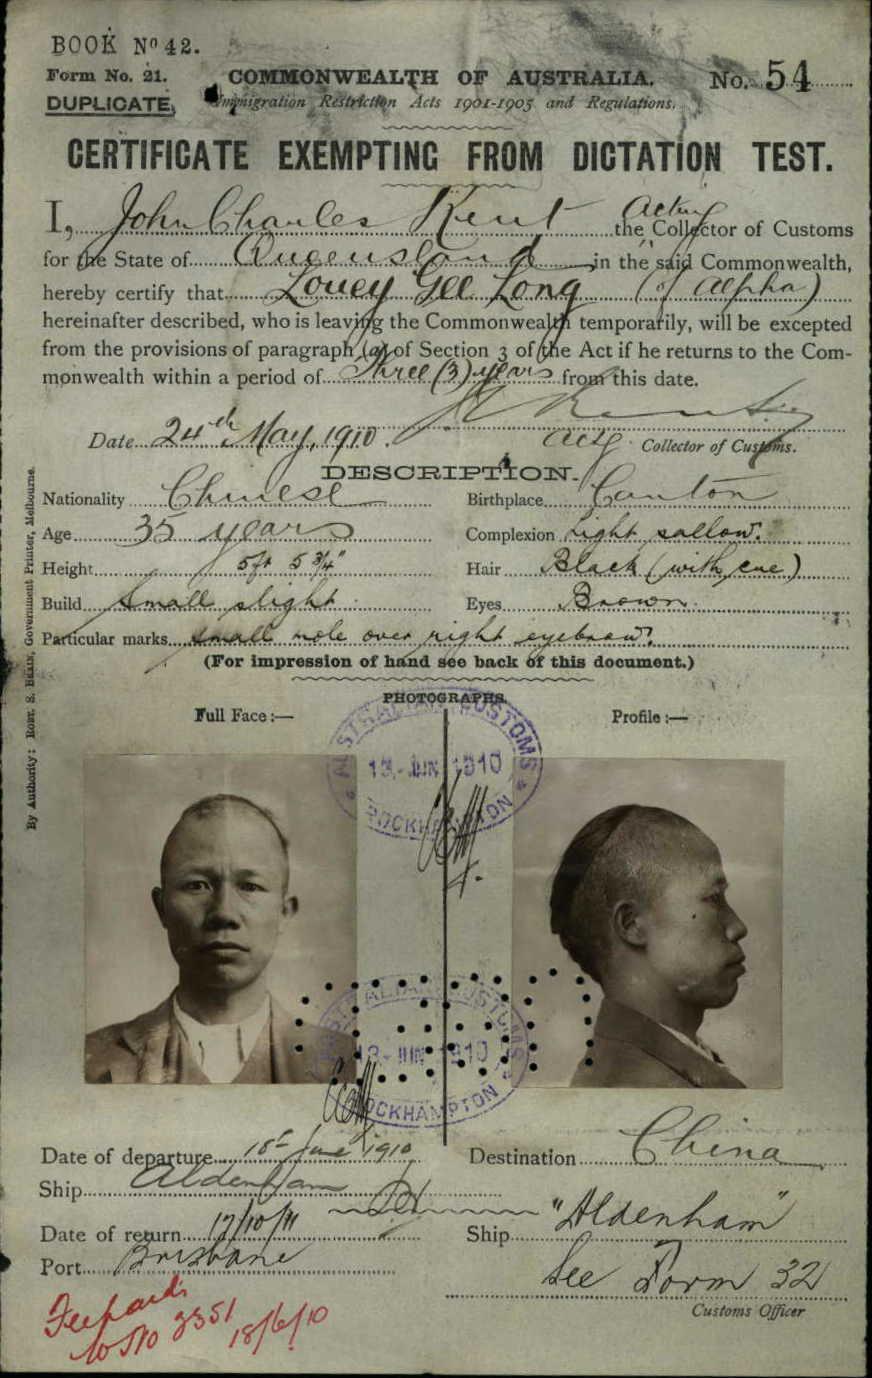 BOOK Nº 42.
Form No. 21.
DUPLICATE.
COMMONWEALTH OF AUSTRALIA.
No. 54
Immigration Restriction Acts 1901-1905 and Regulations.
CERTIFICATE EXEMPTING FROM DICTATION TEST.
I, John Charles Kent Acting the Collector of Customs
for the State of Queensland in the said Commonwealth,
hereby certify that Louey Gee Long (of Alpha)
hereinafter described, who is leaving the Commonwealth temporarily, will be excepted
from the provisions of paragraph (a) of Section 3 of the Act if he returns to the Com-
monwealth within a period of Three (3) years from this date.
Date 24th May, 1910.
Actg. Collector of Customs.
DESCRIPTION.
Nationality Chinese
Birthplace Canton
Age 35 years
Complexion Light sallow.
Height 5ft 5 3/4"
Hair Black (with cue)
Build Small slight
Eyes Brown.
Particular marks small mole over right eyebrow.
(For impression of hand see back of this document.)
PHOTOGRAPHS.
Full Face :—
Profile :—
AUSTRALIAN CUSTOMS
13 - JUN 1910
ROCKHAMPTON
AUSTRALIAN CUSTOMS
13 - JUN 1910
ROCKHAMPTON
Date of departure 18th June 1910
Destination China
Ship Aldenham
Date of return 17/10/11
Ship "Aldenham"
Port Brisbane
See Form 32
Customs Officer
3351
18/6/10
By Authority: ROBT. S. BRAIN, Government Printer, Melbourne.